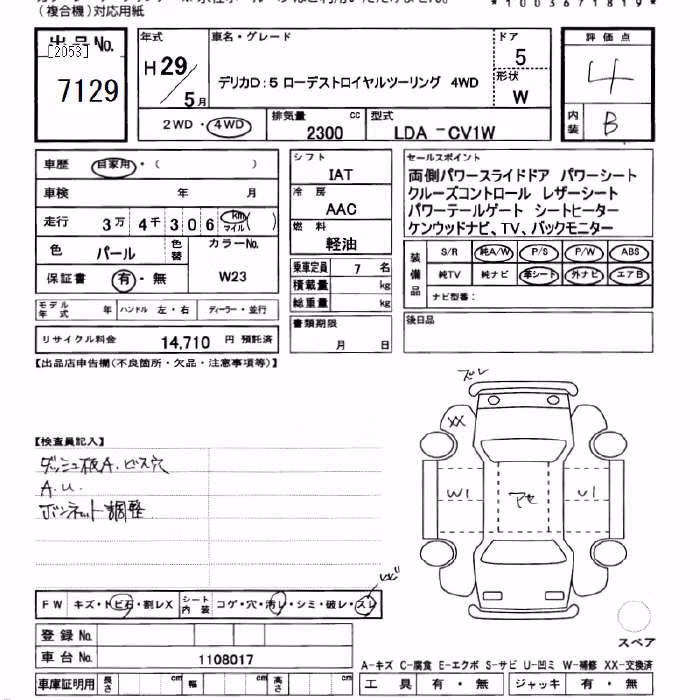 (複合機)対応用紙
*1003671819*
出品No.
[2053]
7129
年式
H29
5月
車名・グレード
デリカD:5 ローデストロイヤルツーリング 4WD
ドア
5
形状
W
評価点
4
内装
B
2WD・4WD
排気量
2300
cc
型式
LDA-CV1W
車歴
自家用・( )
車検 年 月
走行 3万4千306 km マイル ( )
色 パール
色替
カラーNo.
W23
保証書 有・無
モデル年式 年 ハンドル 左・右 ディーラー・並行
リサイクル料金 14,710 円 預託済
シフト
IAT
冷房
AAC
燃料
軽油
乗車定員 7 名
積載量 kg
総重量 kg
書類期限
月 日
セールスポイント
両側パワースライドドア パワーシート
クルーズコントロール レザーシート
パワーテールゲート シートヒーター
ケンウッドナビ、TV、バックモニター
装備品
S/R 純A/W P/S P/W ABS
純TV 純ナビ 革シート 外ナビ エアB
ナビ型番:
後日品
【出品店申告欄(不良箇所・欠品・注意事項等)】
【検査員記入】
ダッシュ板A.ビス穴
A.U.
ボンネット調整
ズレ
XX
W1
アセ
U1
FW キズ・トビ石・割レX
シート内装 コゲ・穴・汚レ・シミ・破レ・スレ
登録No.
車台No. 1108017
車庫証明用 長さ cm 幅 cm 高さ cm
スペア
A-キズ C-腐食 E-エクボ S-サビ U-凹ミ W-補修 XX-交換済
工具 有・無 ジャッキ 有・無